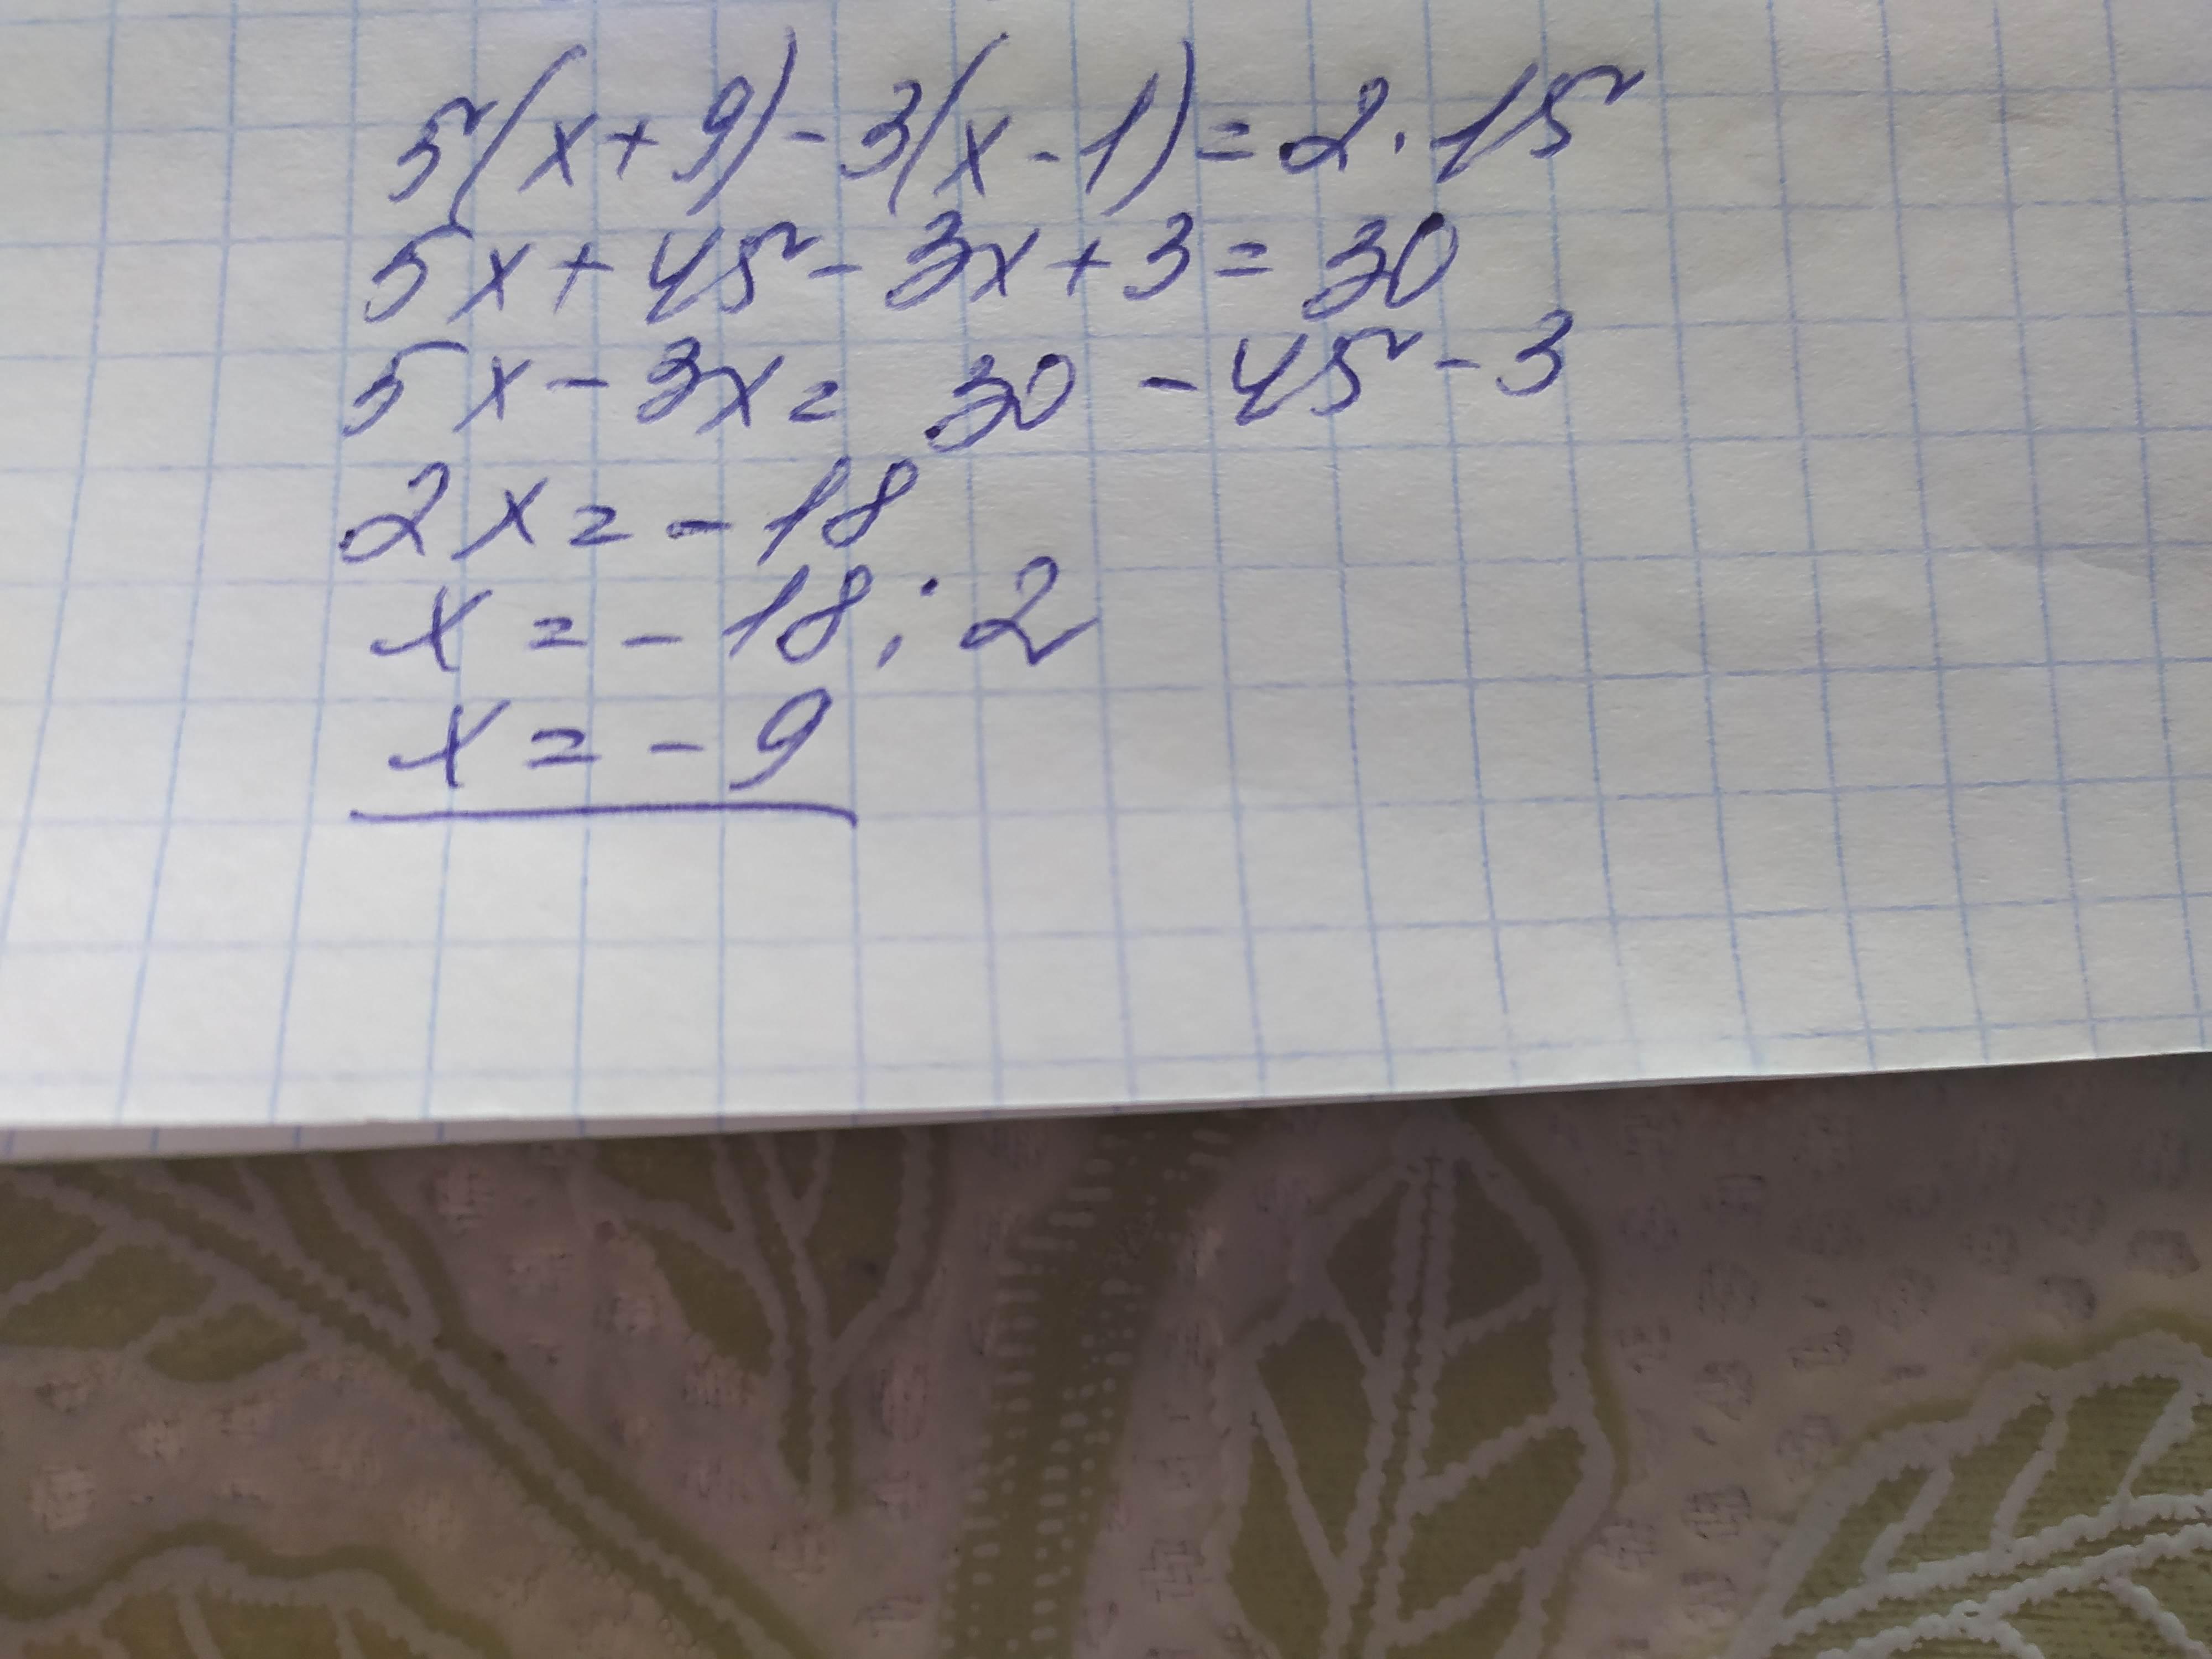 5(x+9)-3(x-1)=2·15
5x+45-3x+3=30
5x-3x=30-45-3
2x=-18
x=-18:2
x=-9